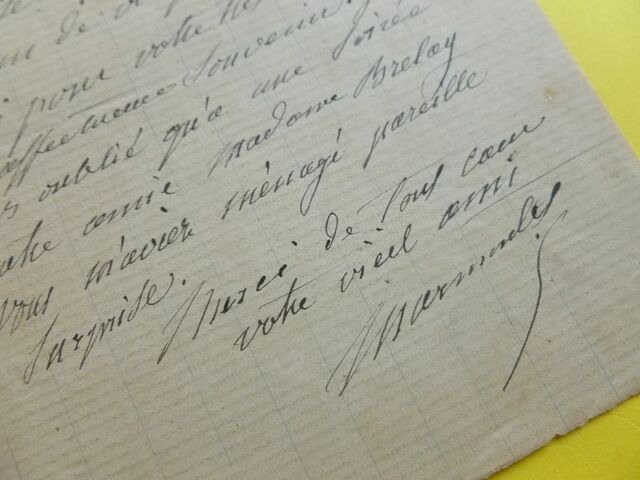 de
pour votre
affectueux souvenir
oublié qu'a une soirée
votre amie madame Brelay
vous m'aviez ménagé pareille
surprise.
Merci de tout cœur
votre vieil ami
Marmontel